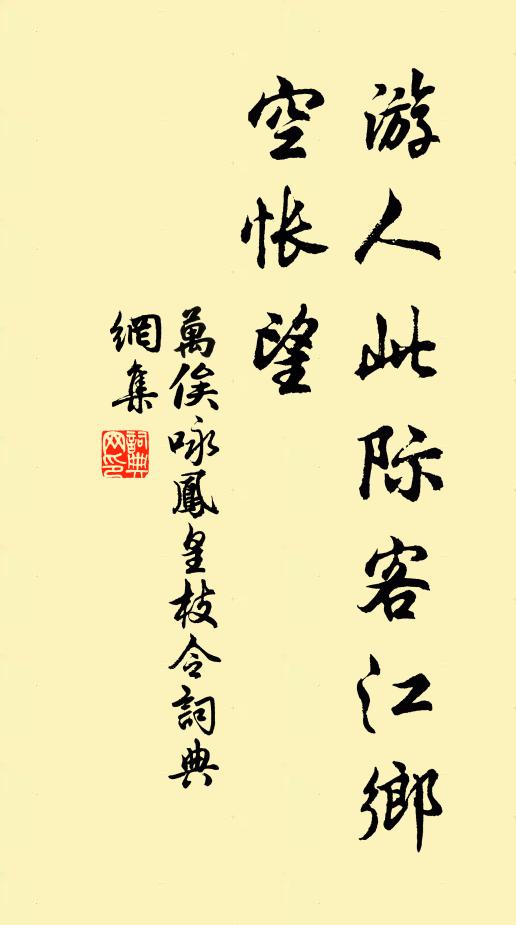 游人此际客江鄉
空怅望
萬俟咏鳳皇枝令詞典
網集
詞典網印